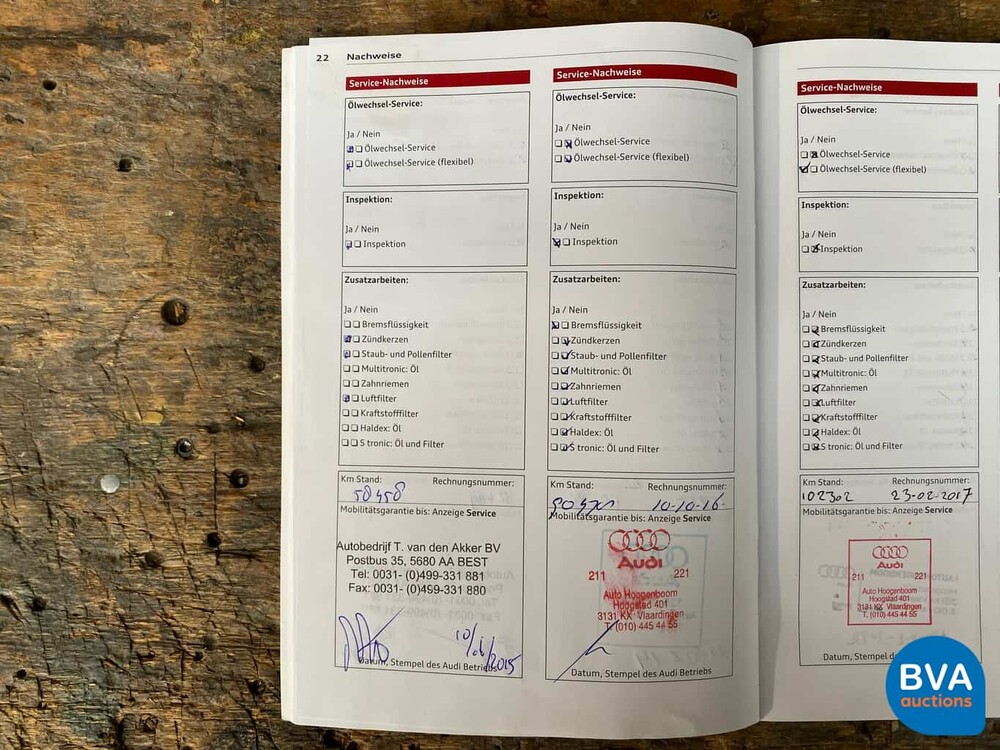 22 Nachweise
Service-Nachweise
Ölwechsel-Service:
Ja / Nein
Ölwechsel-Service
Ölwechsel-Service (flexibel)
Inspektion:
Ja / Nein
Inspektion
Zusatzarbeiten:
Ja / Nein
Bremsflüssigkeit
Zündkerzen
Staub- und Pollenfilter
Multitronic: Öl
Zahnriemen
Luftfilter
Kraftstofffilter
Haldex: Öl
S tronic: Öl und Filter
Km Stand: Rechnungsnummer:
58458
Mobilitätsgarantie bis: Anzeige Service
Autobedrijf T. van den Akker BV
Postbus 35, 5680 AA BEST
Tel: 0031- (0)499-331 881
Fax: 0031- (0)499-331 880
Datum, Stempel des Audi Betriebs
Service-Nachweise
Ölwechsel-Service:
Ja / Nein
Ölwechsel-Service
Ölwechsel-Service (flexibel)
Inspektion:
Ja / Nein
Inspektion
Zusatzarbeiten:
Ja / Nein
Bremsflüssigkeit
Zündkerzen
Staub- und Pollenfilter
Multitronic: Öl
Zahnriemen
Luftfilter
Kraftstofffilter
Haldex: Öl
S tronic: Öl und Filter
Km Stand: Rechnungsnummer:
10-10-16-
Mobilitätsgarantie bis: Anzeige Service
Audi
211 221
Auto Hoogenboom
Hoogstad 401
3131 KX Vlaardingen
T. (010) 445 44 55
Datum, Stempel des Audi Betriebs
Service-Nachweise
Ölwechsel-Service:
Ja / Nein
Ölwechsel-Service
Ölwechsel-Service (flexibel)
Inspektion:
Ja / Nein
Inspektion
Zusatzarbeiten:
Ja / Nein
Bremsflüssigkeit
Zündkerzen
Staub- und Pollenfilter
Multitronic: Öl
Zahnriemen
Luftfilter
Kraftstofffilter
Haldex: Öl
S tronic: Öl und Filter
Km Stand: Rechnungsnummer:
102302 23-02-2017
Mobilitätsgarantie bis: Anzeige Service
Audi
211 221
Auto Hoogenboom
Hoogstad 401
3131 KX Vlaardingen
T. (010) 445 44 55
Datum, Stempel des
BVA
auctions